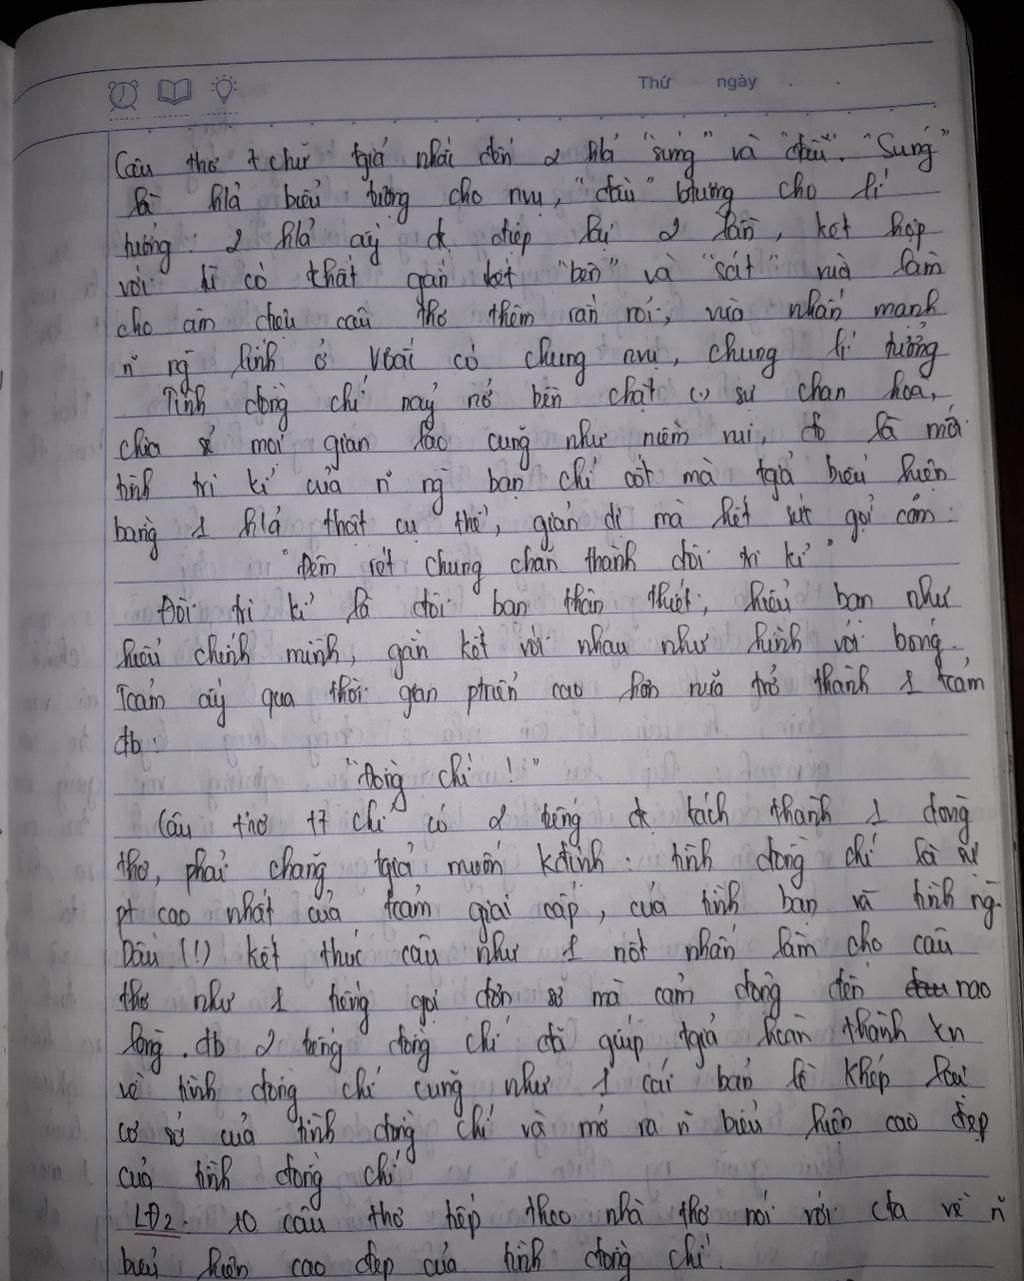 Thứ ngày
Câu thơ 7 chữ tgiả nhắc đến 2 h/ả "súng" và "đầu". "Súng"
là h/ả biểu tượng cho nvụ, "đầu" btượng cho lí
tưởng. 2 h/ả ấy đc điệp lại 2 lần, kết hợp
với từ có thất gắn kết "bên" và "sát" vừa làm
cho âm điệu câu thơ thêm rắn rỏi, vừa nhấn mạnh
n ng lính ở có chung nvụ, chung lí tưởng
Tình đồng chí nảy nở bền chặt sự chan hoà,
chia sẻ mọi gian lao cũng như niềm vui, đó là mối
tình tri kỉ của n ng bạn chí cốt mà tgiả biểu hiện
bằng 1 h/ả thật cụ thể, giản dị mà hết sức gợi cảm:
"Đêm rét chung chăn thành đôi tri kỉ"
Đôi tri kỉ là đôi bạn thân thiết, hiểu bạn như
hiểu chính mình, gắn kết với nhau như hình với bóng.
Tcảm ấy qua thời gian ptriển cao hơn nữa trở thành 1 tcảm
đb:
"Đồng chí!"
Câu thơ t7 chỉ có 2 tiếng đc tách thành 1 dòng
thơ, phải chăng tgiả muốn kđịnh: tình đồng chí là sự
pt cao nhất của tcảm giai cấp, của tình bạn và tình ng.
Dấu (!) kết thúc câu như 1 nốt nhấn làm cho câu
thơ như 1 tiếng gọi đơn sơ mà cảm động đến nao
lòng. đb 2 tiếng đồng chí đã giúp tgiả hoàn thành
về tình đồng chí cũng như 1 cái bản lề khép lại
cơ sở của tình đồng chí và mở ra n biểu hiện cao đẹp
của tình đồng chí
LĐ2. 10 câu thơ tiếp theo nhà thơ nói với cta về n
biểu hiện cao đẹp của tình đồng chí.